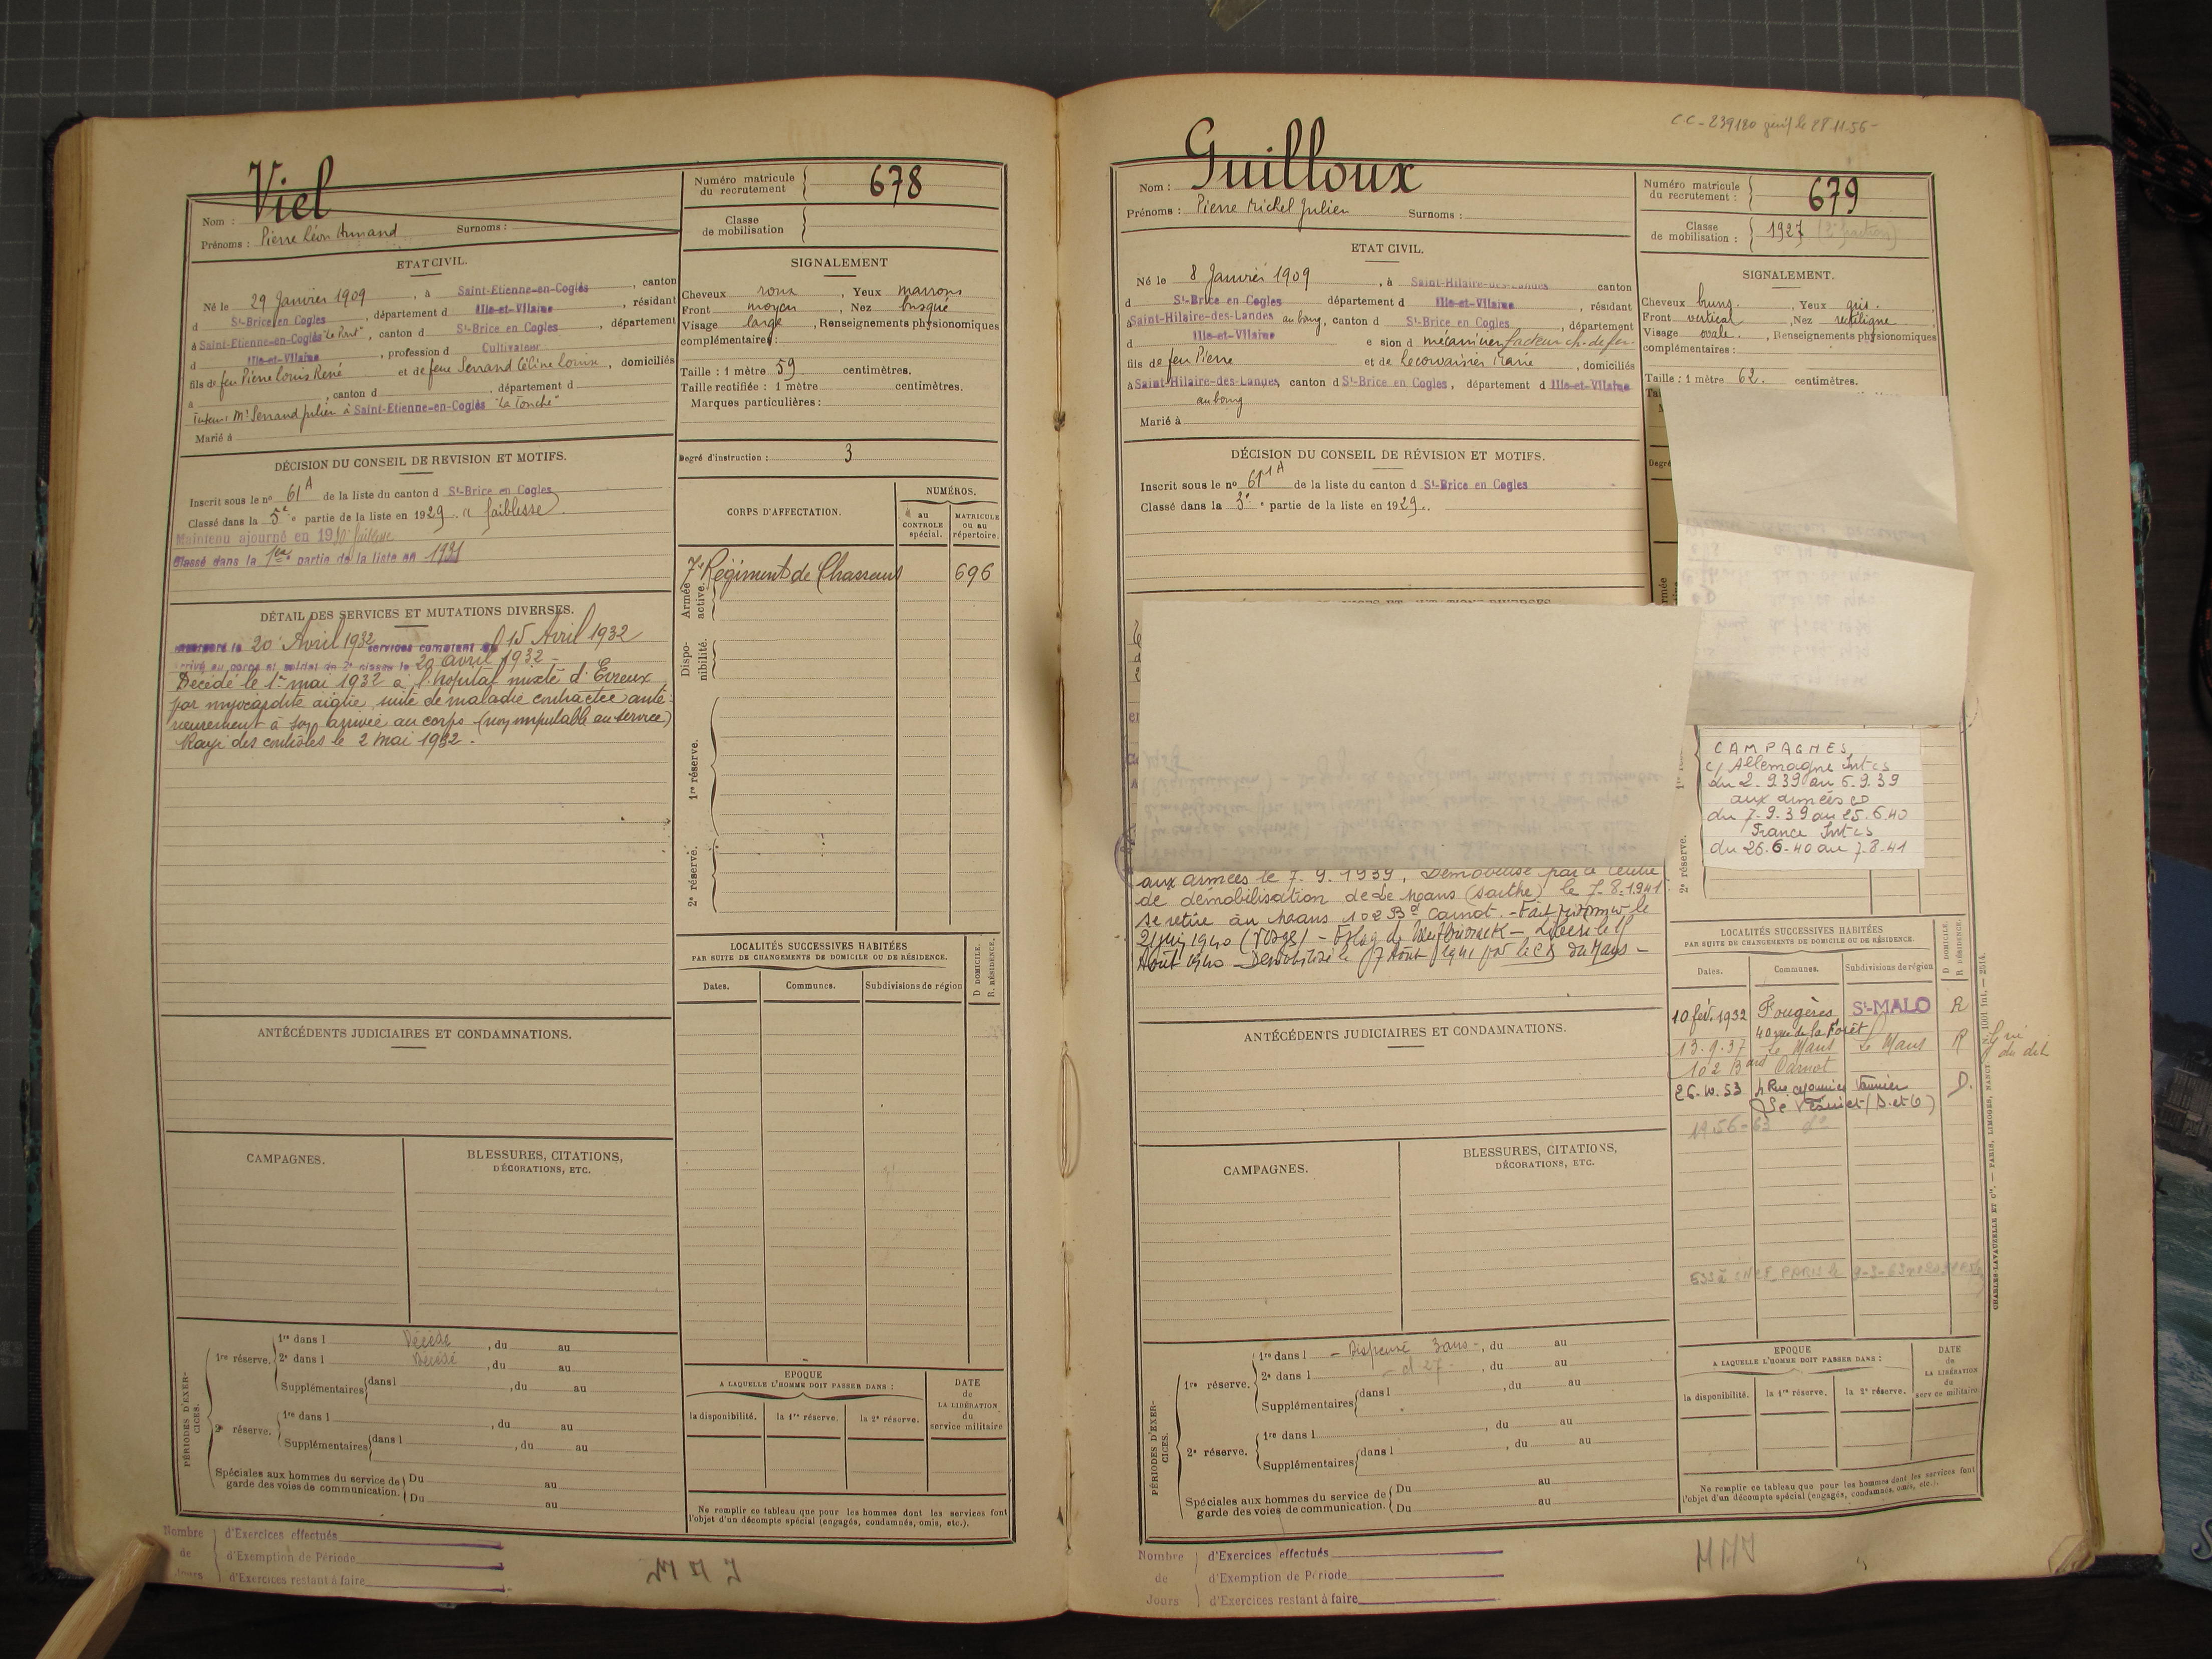 Nom : Viel
Prénoms : Pierre Léon Armand Surnoms :
Numéro matricule du recrutement 678
Classe de mobilisation
ETAT CIVIL.
Né le 29 Janvier 1909, à Saint-Etienne-en-Coglès, canton
d St-Brice en Cogles, département d Ille-et-Vilaine, résidant
à Saint-Etienne-en-Coglès, canton d St-Brice en Cogles, département
d Ille-et-Vilaine, profession d Cultivateur
fils de feu Pierre Louis René et de feue Serrand Céline Louise, domiciliés
à , canton d , département d
Tuteur : Mr Serrand Julien à Saint-Etienne-en-Coglès "La Touche"
Marié à
SIGNALEMENT
Cheveux roux, Yeux marrons
Front moyen, Nez busqué
Visage large, Renseignements physionomiques
complémentaires :
Taille : 1 mètre 59 centimètres.
Taille rectifiée : 1 mètre centimètres.
Marques particulières :
Degré d'instruction : 3
DÉCISION DU CONSEIL DE REVISION ET MOTIFS.
Inscrit sous le no 61 A de la liste du canton d St-Brice en Cogles
Classé dans la 5e partie de la liste en 1929. faiblesse
Maintenu ajourné en 1930 faiblesse
Classé dans la 1re partie de la liste en 1931
CORPS D'AFFECTATION.
NUMÉROS.
au CONTROLE spécial.
MATRICULE OU AU répertoire.
Armée active.
7e Régiment de Chasseurs 696
Disponibilité.
1re réserve.
2e réserve.
DÉTAIL DES SERVICES ET MUTATIONS DIVERSES.
le 20 Avril 1932 services comptent du 15 Avril 1932
Arrivé au corps et soldat de 2e classe le 20 avril 1932 -
Décédé le 1er mai 1932 à l'hopital mixte d'Evreux
par myocardite aigüe, suite de maladie contractée anté-
rieurement à son arrivée au corps (non imputable au service)
Rayé des contrôles le 2 mai 1932.
LOCALITÉS SUCCESSIVES HABITÉES
PAR SUITE DE CHANGEMENTS DE DOMICILE OU DE RÉSIDENCE.
Dates. Communes. Subdivisions de région
D. DOMICILE.
R. RÉSIDENCE.
ANTÉCÉDENTS JUDICIAIRES ET CONDAMNATIONS.
CAMPAGNES.
BLESSURES, CITATIONS,
DÉCORATIONS, ETC.
PÉRIODES D'EXERCICES.
1re réserve. 1re dans l Décédé, du au
2e dans l Décédé, du au
Supplémentaires dans l , du au
2e réserve. 1re dans l , du au
Supplémentaires dans l , du au
Spéciales aux hommes du service de garde des voies de communication. Du au
Du au
EPOQUE
A LAQUELLE L'HOMME DOIT PASSER DANS :
la disponibilité. la 1re réserve. la 2e réserve.
DATE de LA LIBÉRATION du service militaire
Ne remplir ce tableau que pour les hommes dont les services font
l'objet d'un décompte spécial (engagés, condamnés, omis, etc.).
Nombre de Jours
d'Exercices effectués
d'Exemption de Période
d'Exercices restant à faire
CC-239180 le 28.11.56-
Nom : Guilloux
Prénoms : Pierre Michel Julien Surnoms :
Numéro matricule du recrutement : 679
Classe de mobilisation : 1927 (2e fraction)
ETAT CIVIL.
Né le 8 Janvier 1909, à Saint-Hilaire-des-Landes canton
d St-Brice en Cogles département d Ille-et-Vilaine, résidant
à Saint-Hilaire-des-Landes au bourg, canton d St-Brice en Cogles, département
d Ille-et-Vilaine e sion d mécanicien facteur ch. de fer.
fils de feu Pierre et de Lecorvaisier Marie, domiciliés
à Saint-Hilaire-des-Landes, canton d St-Brice en Cogles, département d Ille-et-Vilaine
au bourg
Marié à
SIGNALEMENT.
Cheveux bruns, Yeux gris.
Front vertical, Nez rectiligne
Visage ovale, Renseignements physionomiques
complémentaires :
Taille : 1 mètre 62. centimètres.
DÉCISION DU CONSEIL DE RÉVISION ET MOTIFS.
Inscrit sous le no de la liste du canton d St-Brice en Cogles
Classé dans la 3e partie de la liste en 1929.
CAMPAGNES
c/ Allemagne Int cs
du 2-9.39 au 6.9.39
aux armées CD
du 7-9.39 au 25.6.40
France Int cs
du 26.6-40 au 7.8.41
2e réserve.
aux armées le 7.9.1939, Démobilisé par le Centre
de démobilisation de Le Mans (Sarthe) le 7.8.1941
se retire au Mans 102 Bd Carnot. - Fait prisonnier le
21 juin 1940 (Vosges) - Libéré le
Août 1940 - Démobilisé le 7 Août 1941 par le CD du Mans -
LOCALITÉS SUCCESSIVES HABITÉES
PAR SUITE DE CHANGEMENTS DE DOMICILE OU DE RÉSIDENCE.
Dates. Communes. Subdivisions de région
D. DOMICILE.
R. RÉSIDENCE.
10 fév. 1932 Fougères St-MALO R
40 rue de la Forêt
13.9.37 Le Mans Le Mans R
102 Bard Carnot
26-10.53 Le Vésinet (S.et O) D.
1956-63 do
ANTÉCÉDENTS JUDICIAIRES ET CONDAMNATIONS.
CAMPAGNES.
BLESSURES, CITATIONS,
DÉCORATIONS, ETC.
PÉRIODES D'EXERCICES.
1re réserve. 1re dans l - Dispensé 3 ans -, du au
2e dans l - cl 27 - , du au
Supplémentaires dans l , du au
, du au
2e réserve. 1re dans l , du au
Supplémentaires dans l , du au
Spéciales aux hommes du service de garde des voies de communication. Du au
Du au
EPOQUE
A LAQUELLE L'HOMME DOIT PASSER DANS :
la disponibilité. la 1re réserve. la 2e réserve.
DATE de LA LIBÉRATION du service militaire
Ne remplir ce tableau que pour les hommes dont les services font
l'objet d'un décompte spécial (engagés, condamnés, omis, etc.).
CHARLES-LAVAUZELLE ET Cie. — PARIS, LIMOGES, NANCY
Nombre de Jours
d'Exercices effectués
d'Exemption de Période
d'Exercices restant à faire